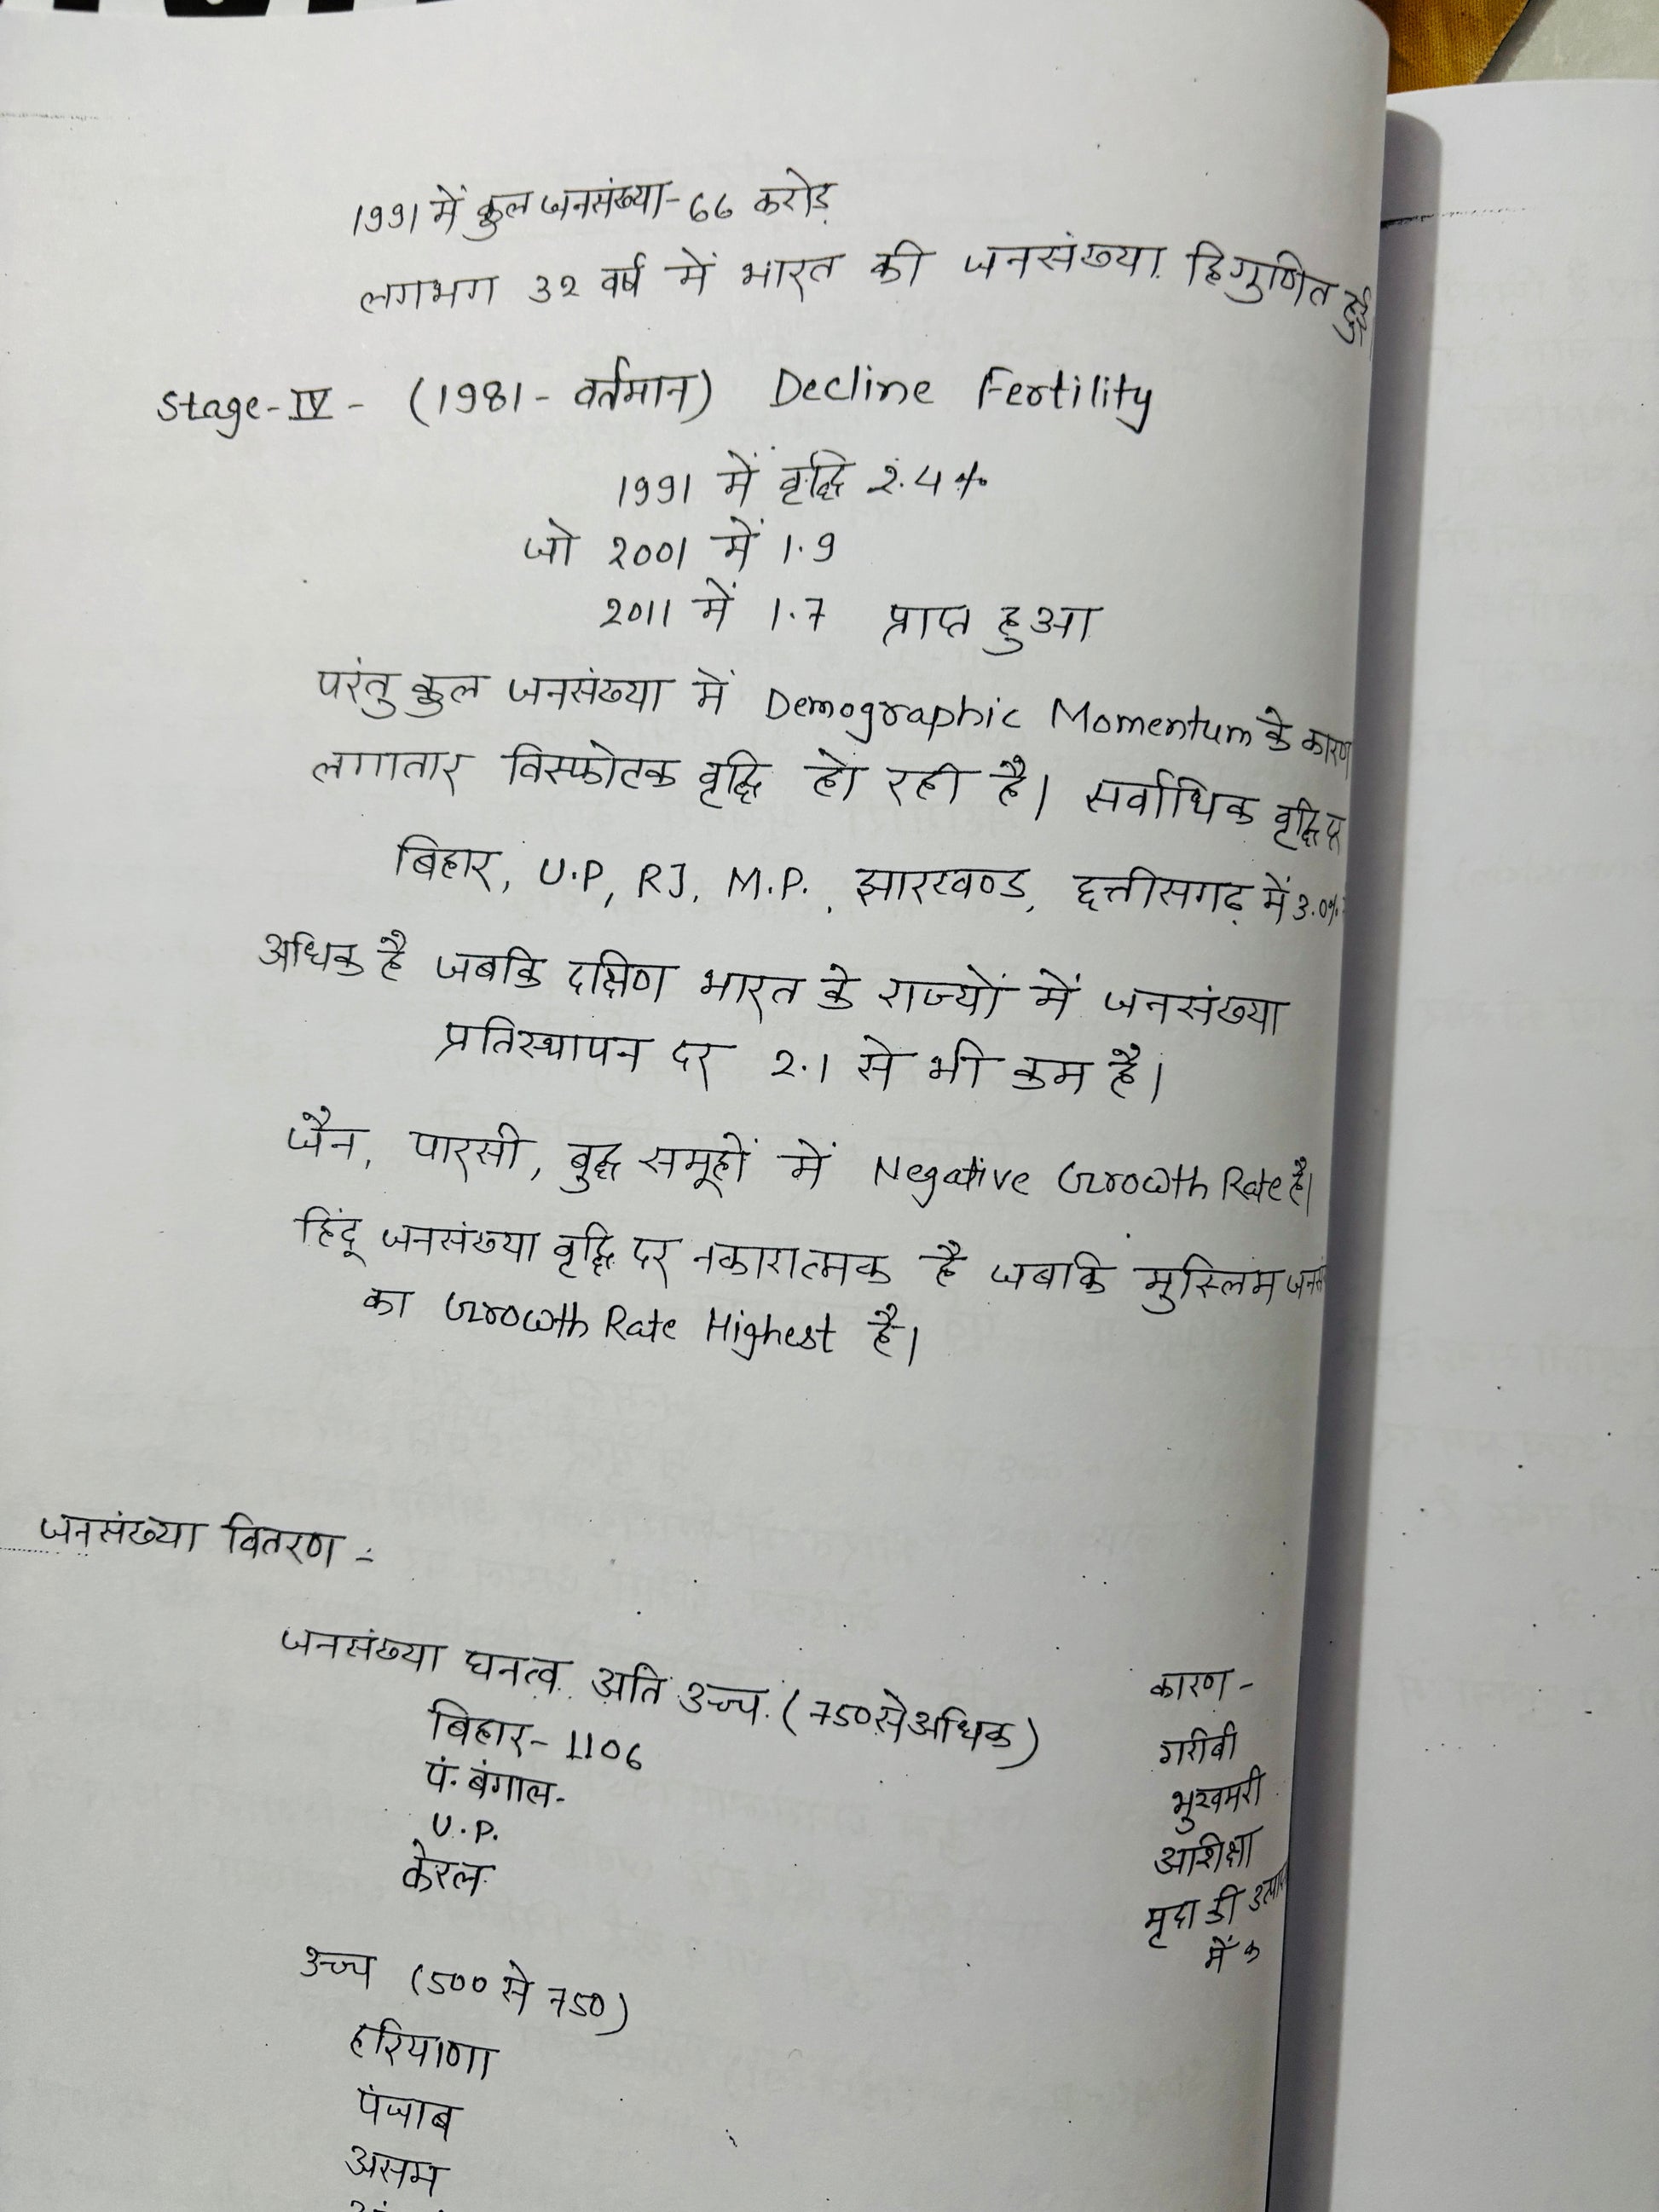 1991 में कुल जनसंख्या - 66 करोड़
लगभग 32 वर्ष में भारत की जनसंख्या द्विगुणित हुई।
Stage-IV - (1981 - वर्तमान) Decline Fertility
1991 में वृद्धि 2.4%
जो 2001 में 1.9
2011 में 1.7 प्राप्त हुआ
परंतु कुल जनसंख्या में Demographic Momentum के कारण
लगातार विस्फोटक वृद्धि हो रही है। सर्वाधिक वृद्धि
बिहार, U.P, RJ, M.P., झारखण्ड, छत्तीसगढ़ में 3.0%
अधिक है जबकि दक्षिण भारत के राज्यों में जनसंख्या
प्रतिस्थापन दर 2.1 से भी कम है।
जैन, पारसी, बुद्ध समूहों में Negative Growth Rate है।
हिंदू जनसंख्या वृद्धि दर नकारात्मक है जबकि मुस्लिम
का Growth Rate Highest है।
जनसंख्या वितरण -
जनसंख्या घनत्व अति उच्च (750 से अधिक)
बिहार - 1106
पं. बंगाल -
U.P.
केरल
कारण -
गरीबी
भुखमरी
अशिक्षा
मृदा की
में
उच्च (500 से 750)
हरियाणा
पंजाब
असम